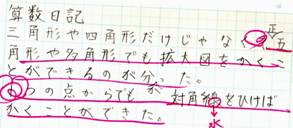 算数日記
三角形や四角形だけじゃなく、正五
角形や多角形でも拡大図をかくこ
とができるのが分った。
2つの点からでもが対角線をひけば
かくことができた。
水